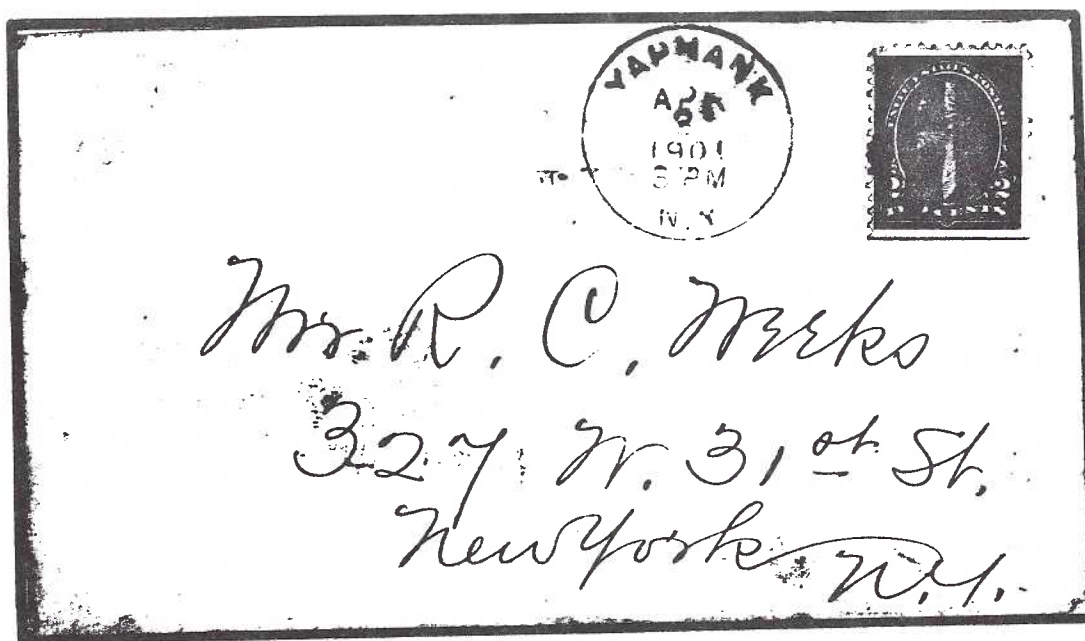 YAPHANK
1901
3 PM
N.Y.
UNITED STATES POSTAGE
CENTS
Mr. R. C. Weeks
327 W. 31st St.
New York N.Y.